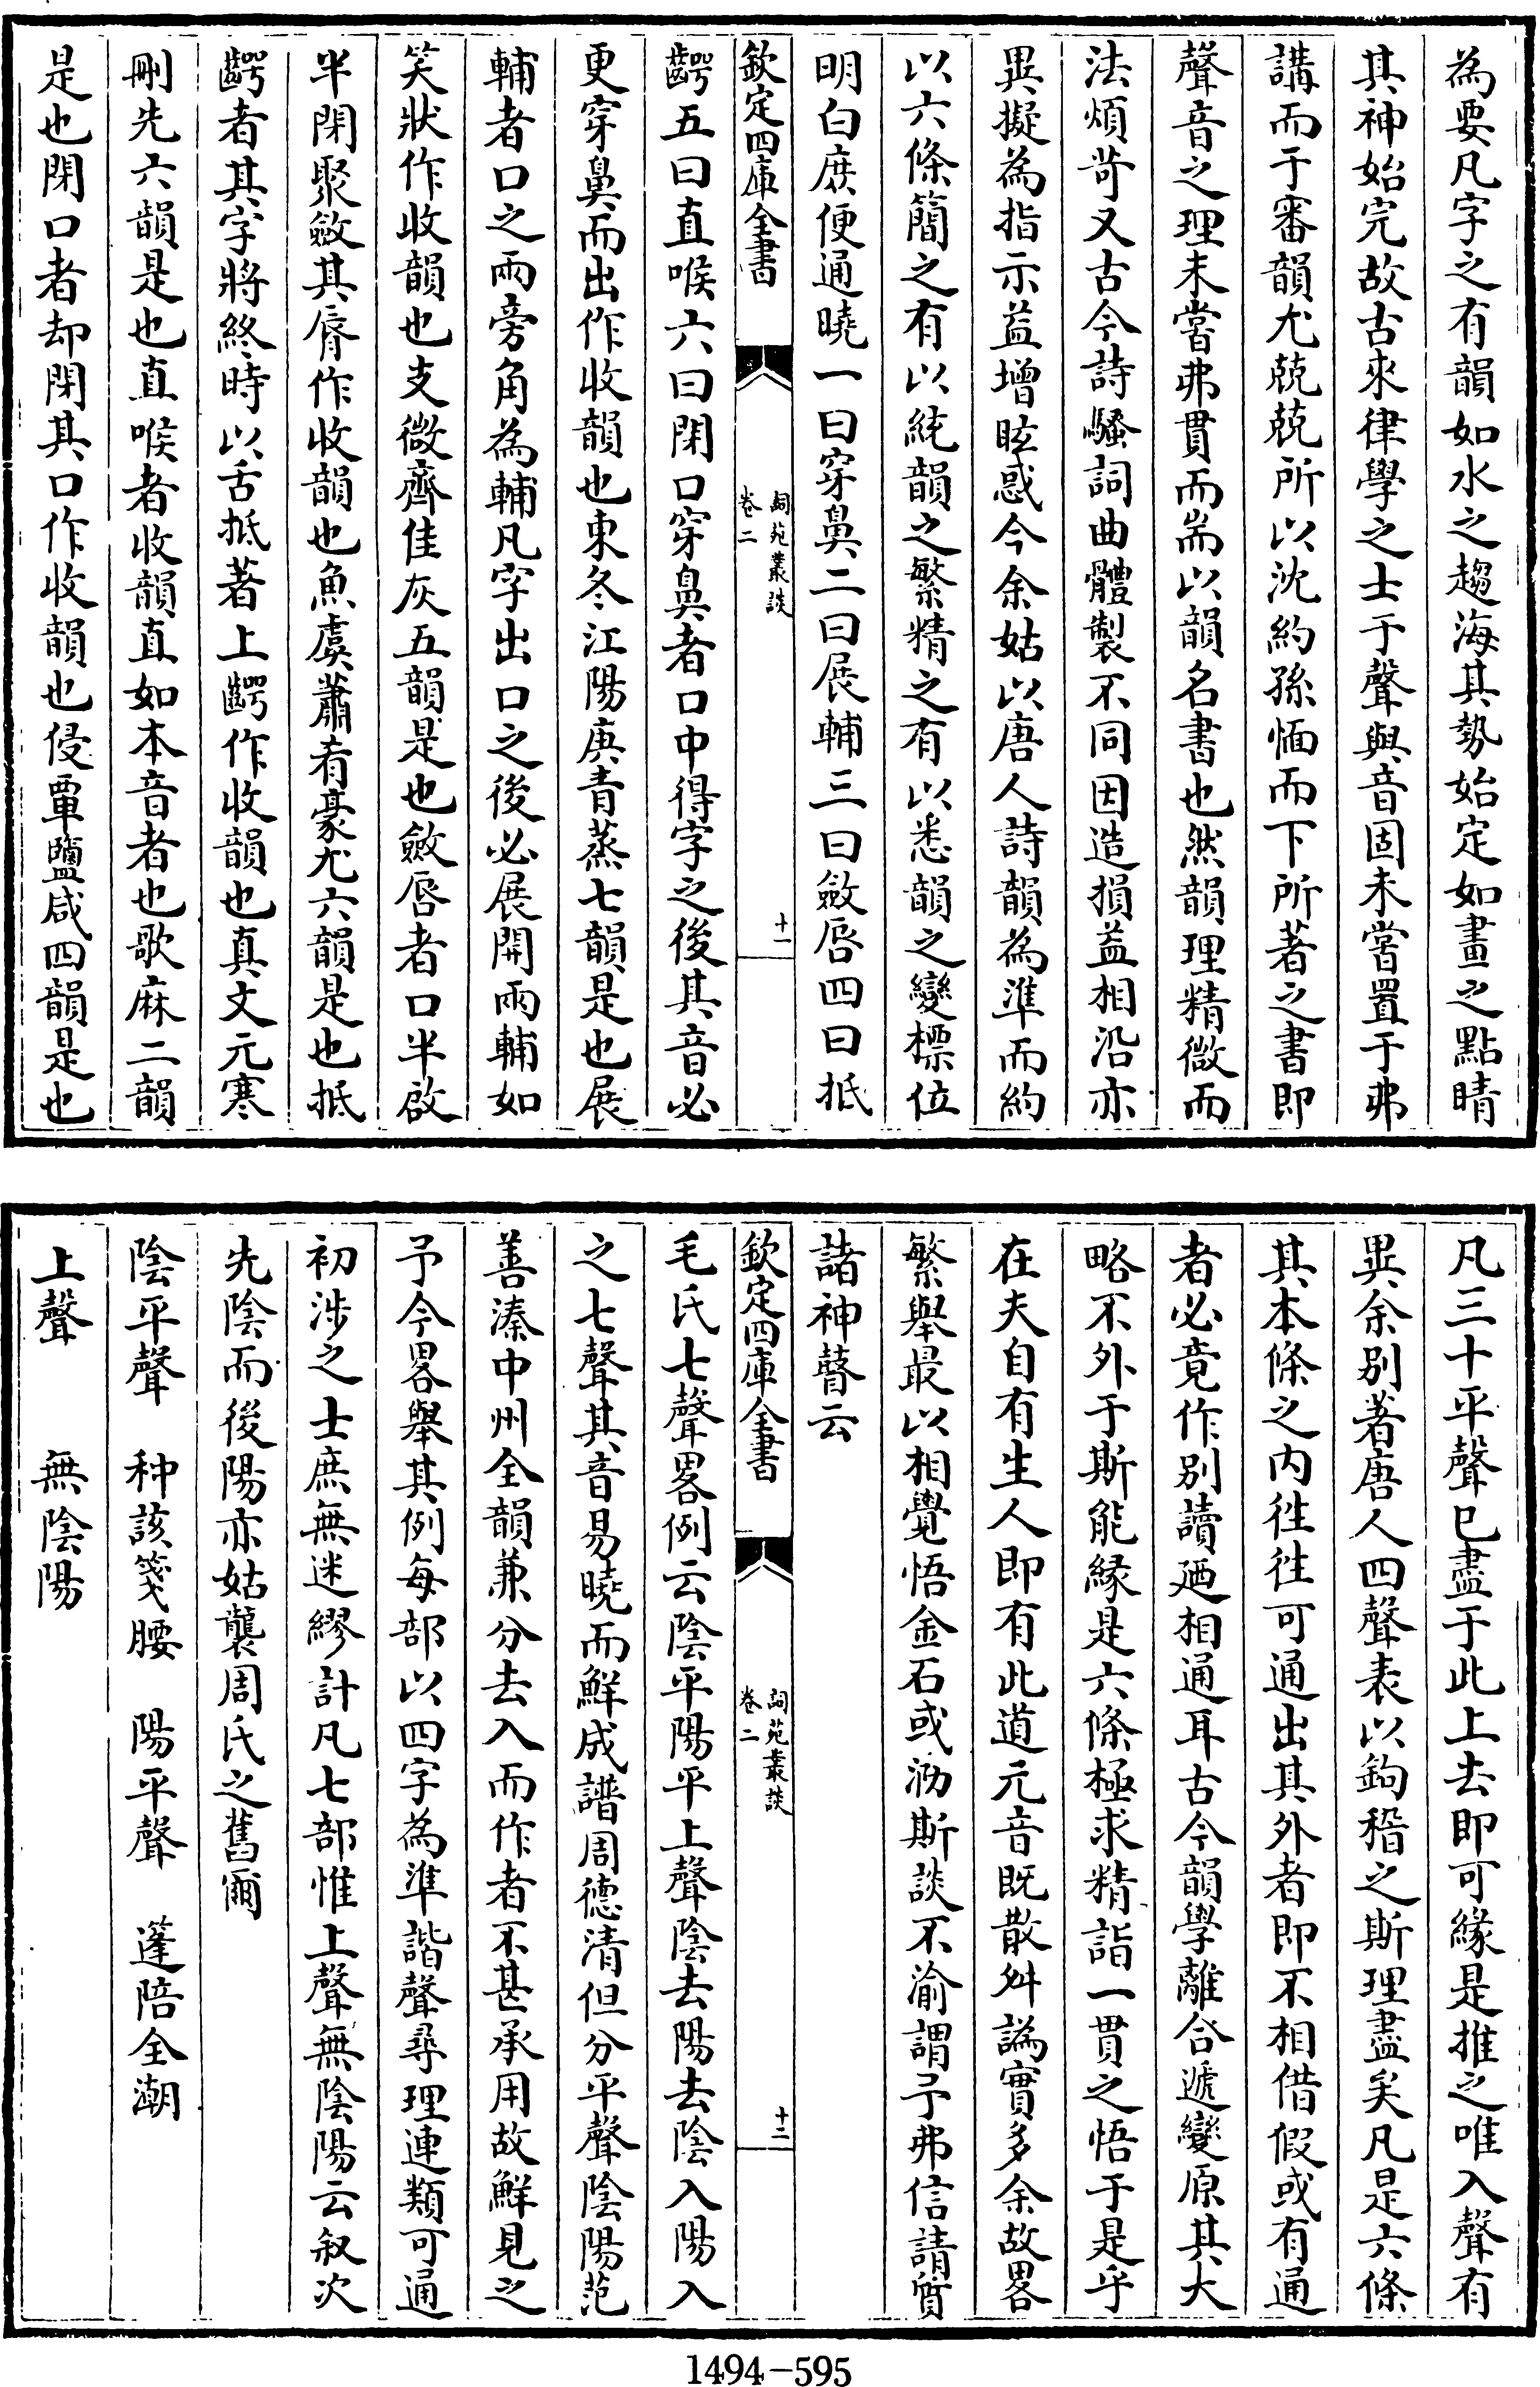 為要凡字之有韻如水之趨海其勢始定如畫之點睛
其神始完故古來律學之士于聲與音固未嘗置于弗
講而于審韻尤兢兢所以沈約孫愐而下所著之書即
聲音之理未嘗弗貫而耑以韻名書也然韻理精微而
法煩苛又古今詩騷詞曲體製不同因造損益相沿亦
異擬為指示益增眩惑今余姑以唐人詩韻為準而約
以六條簡之有以統韻之繁精之有以悉韻之變標位
明白庶便通曉一曰穿鼻二曰展輔三曰斂唇四曰抵
欽定四庫全書
詞苑叢談
卷二
十一
齶五曰直喉六曰閉口穿鼻者口中得字之後其音必
更穿鼻而出作收韻也東冬江陽庚青蒸七韻是也展
輔者口之兩旁角為輔凡字出口之後必展開兩輔如
笑狀作收韻也支微齊佳灰五韻是也斂唇者口半啟
半閉聚斂其脣作收韻也魚虞蕭肴豪尤六韻是也抵
齶者其字將終時以舌抵著上齶作收韻也真文元寒
刪先六韻是也直喉者收韻直如本音者也歌麻二韻
是也閉口者却閉其口作收韻也侵覃鹽咸四韻是也
凡三十平聲已盡于此上去即可緣是推之唯入聲有
異余別著唐人四聲表以鉤稽之斯理盡矣凡是六條
其本條之內徃徃可通出其外者即不相借假或有通
者必竟作別讀廼相通耳古今韻學離合遞變原其大
略不外于斯能緣是六條極求精詣一貫之悟于是乎
在夫自有生人即有此道元音既散舛譌實多余故畧
繁舉最以相覺悟金石或泐斯談不渝謂予弗信請質
諸神瞽云
欽定四庫全書
詞苑叢談
卷二
十二
毛氏七聲畧例云陰平陽平上聲陰去陽去陰入陽入
之七聲其音易曉而鮮成譜周德清但分平聲陰陽范
善溱中州全韻兼分去入而作者不甚承用故鮮見之
予今畧舉其例每部以四字為準諧聲尋理連類可通
初涉之士庶無迷繆計凡七部惟上聲無陰陽云叙次
先陰而後陽亦姑襲周氏之舊爾
陰平聲　种該箋腰　陽平聲　篷陪全潮
上聲　　無陰陽
1494-595